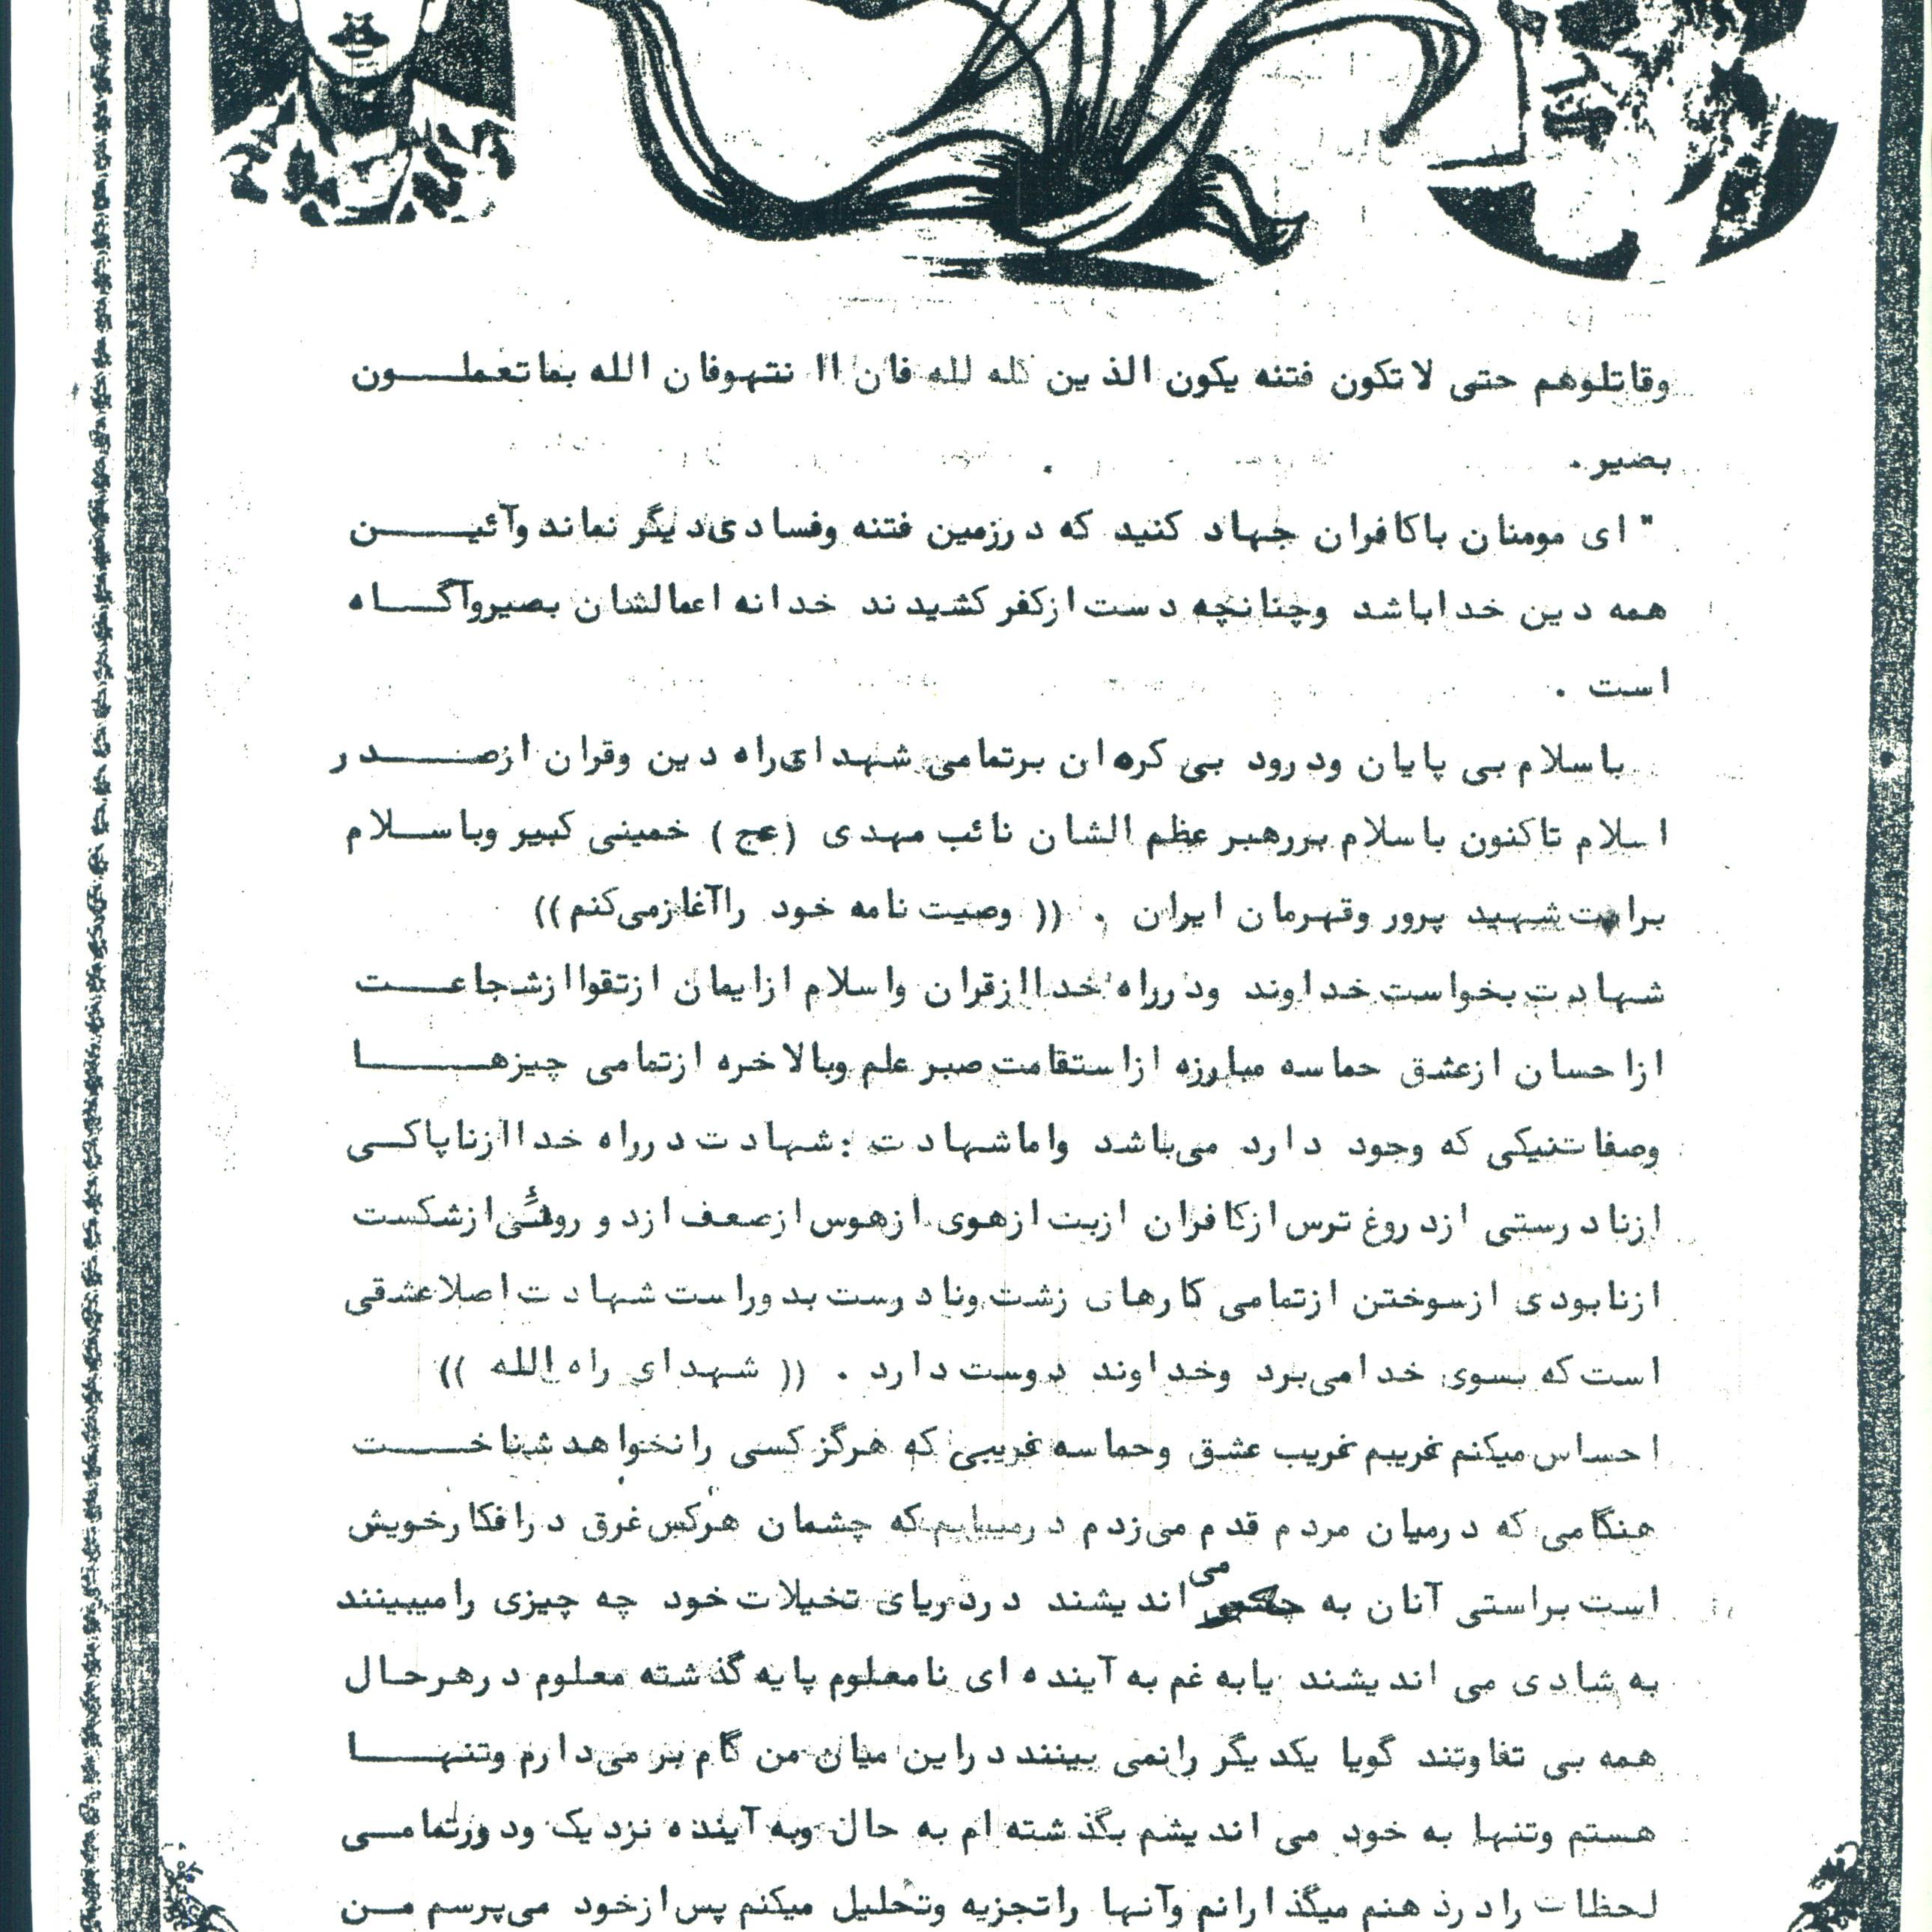 وقاتلوهم حتی لاتکون فتنه یکون الذین کله لله فان اا نتهوفان الله بماتعملون
بصیر.
" ای مومنان باکافران جهاد کنید که درزمین فتنه وفسادی‌دیگر نماند وآئین
همه دین خداباشد وچنانچه دست ازکفر کشیدند خدانه اعمالشان بصیروآگاه
است .
باسلام بی پایان ودرود بی کره ان برتمامی شهدای‌راه دین وقران ازصدر
اسلام تاکنون باسلام بررهبر عظم الشان نائب مهدی (عج) خمینی کبیر وباسلام
برامت شهید پرور وقهرمان ایران . (( وصیت نامه خود راآغازمی‌کنم))
شهادت بخواست خداوند ودرراه خداازقران واسلام ازایمان ازتقواازشجاعت
ازاحسان ازعشق حماسه مبارزه ازاستقامت صبر علم وبالاخره ازتمامی چیزها
وصفات‌نیکی که وجود دارد می‌باشد واماشهادت :شهادت درراه خداازناپاکی
ازنادرستی ازدروغ ترس ازکافران ازبت ازهوی ازهوس ازصعف ازد و روئی ازشکست
ازنابودی ازسوختن ازتمامی کارهای زشت ونادرست بدوراست شهادت اصلاعشقی
است که بسوی خدامی‌برد وخداوند دوست دارد . (( شهدای راه الله ))
احساس میکنم غریبم غریب عشق وحماسه غریبی که هرگز کسی رانخواهد شناخت
هنگامی که درمیان مردم قدم می‌زدم درمییابم که چشمان هرکس غرق درافکارخویش
است براستی آنان به می اندیشند دردریای تخیلات خود چه چیزی رامیبینند
به شادی می اندیشند یابه غم به آینده ای نامعلوم پایه گذشته معلوم درهرحال
همه بی تفاوتند گویا یکدیگر رانمی بینند دراین میان من گام بر می‌دارم وتنها
هستم وتنها به خود می اندیشم بگذشته ام به حال وبه آینده نزدیک ودورتمامی
لحظات رادرذ هنم میگذارانم وآنها راتجزیه وتحلیل میکنم پس ازخود می‌پرسم من